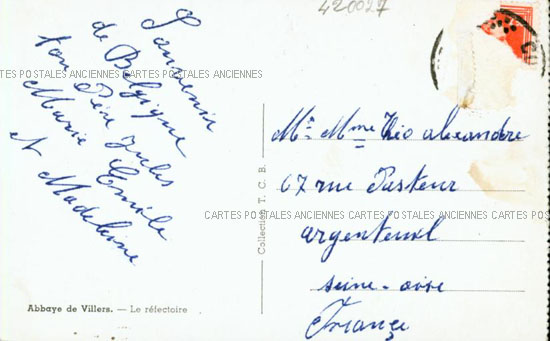 420027
Souvenir
de Belgique
ton Père Jules
Marie Emile
et Madeleine
Abbaye de Villers. — Le réfectoire
Collection T. C. B.
Mr Mme Théo alexandre
67 rue Pasteur
argenteuil
seine-oise
France
CARTES POSTALES ANCIENNES CARTES POSTALES ANCIENNES
CARTES POSTALES ANCIENNES CARTES POSTALES ANCIENNES CARTES POSTALES ANCIENNES CARTES POSTALES ANCIENNES